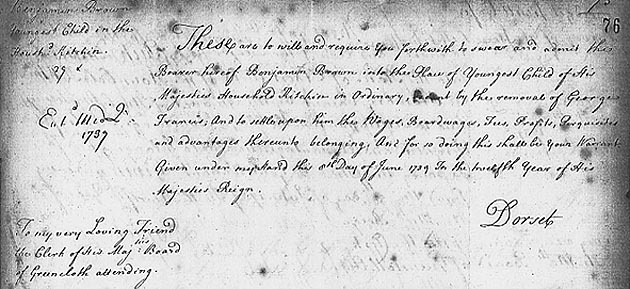 Benjamin Brown
Youngest Child in the
Househ.d Kitchin.
76
These are to will and require You forthwith to swear and admit the
Bearer hereof Benjamin Brown into the Place of Youngest Child of His
Majesties Household Kitchin in Ordinary, by the removal of George
Francis; And to settle upon him the Wages, Boardwages, Fees, Profits, Perquisites
and advantages thereunto belonging, And for so doing this shall be Your Warrant
Given under my hand this 8th Day of June 1739 In the twelfth Year of His
Majesties Reign.
Ent.d Mid Q.
1739
Dorset
To my very Loving Friend
the Clerk of His Maj.ties Board
of Greencloth attending.